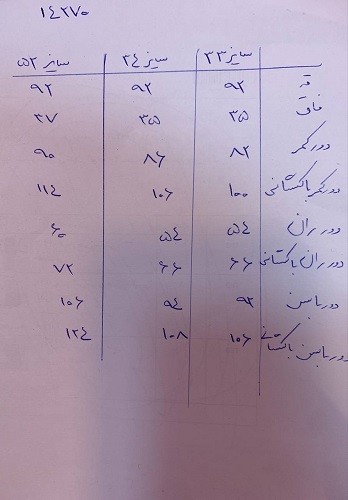 ۱۴۲۷۰
سایز ۳۳ سایز ۳۴ سایز ۵۲
قد ۹۲ ۹۲ ۹۲
فاق ۳۵ ۳۵ ۳۷
دور کمر ۸۲ ۸۶ ۹۰
دور کمر با کشسانی ۱۰۰ ۱۰۶ ۱۱۴
دور ران ۵۴ ۵۴ ۶۰
دور ران با کشسانی ۶۶ ۶۶ ۷۲
دور باسن ۹۲ ۹۴ ۱۰۶
دور باسن با کشسانی ۱۰۶ ۱۰۸ ۱۲۴